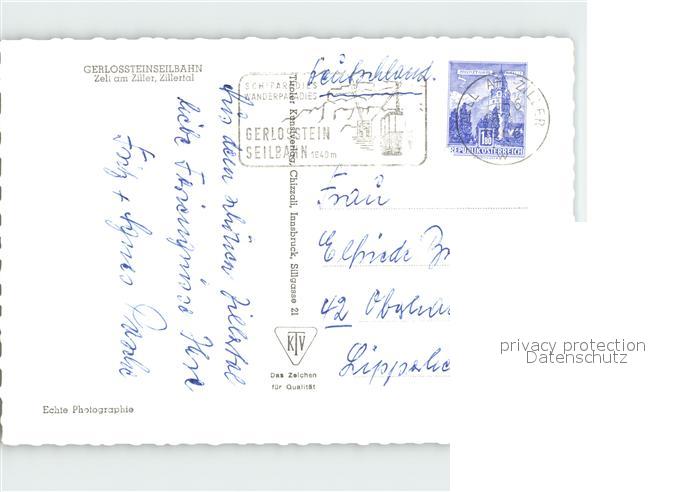 GERLOSSTEINSEILBAHN
Zell am Ziller, Zillertal
Deutschland.
SCHIPARADIES
WANDERPARADIES
GERLOSSTEIN
SEILBAHN 1640 m
ZILLER
1.80
REPUBLIK ÖSTERREICH
Aus dem schönen Zillertal
liebe Feriengrüsse Ihre
Fritz + Agnes
Tiroler Kunstverlag Chizzali, Innsbruck, Sillgasse 21
Frau
Elfriede
42 Oberhau
Lipperhe
KTV
Das Zeichen
für Qualität
Echte Photographie
privacy protection
Datenschutz